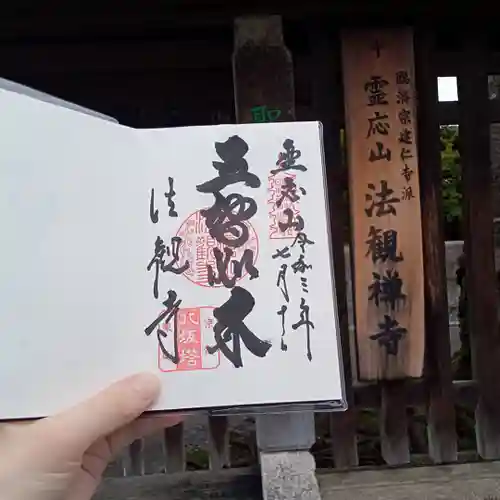 臨済宗建仁寺派
霊応山
法観禅寺
霊応山
令和三年
七月十一
五智如来
法観寺
八坂塔